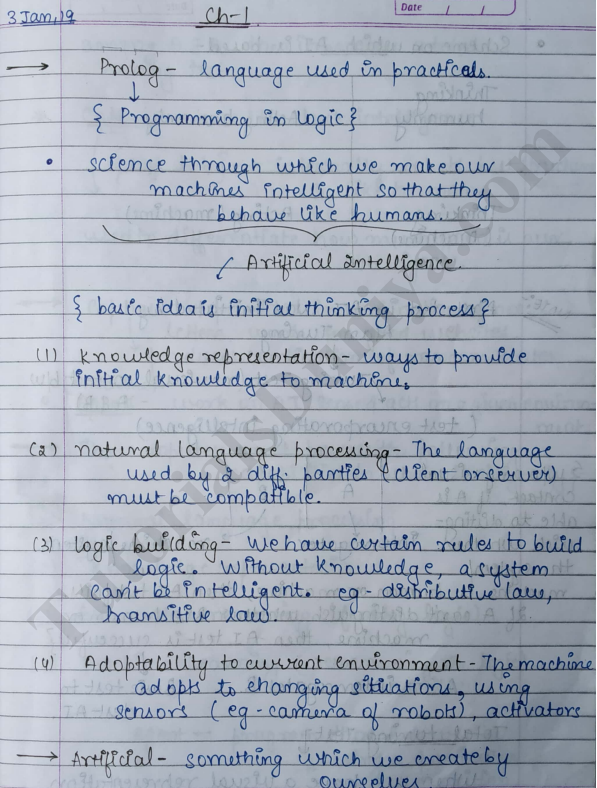 3 Jan, 19
Ch-1
Date / /
→ Prolog - language used in practicals.
↓
{ Programming in logic }
• science through which we make our
machines intelligent so that they
behave like humans.
Artificial Intelligence.
{ basic idea is initial thinking process }
(1) knowledge representation - ways to provide
initial knowledge to machine.
(2) natural language processing - The language
used by 2 diff. parties (client or server)
must be compatible.
(3) logic building - We have certain rules to build
logic. Without knowledge, a system
can't be intelligent. eg - distributive law,
transitive law.
(4) Adoptability to current environment - The machine
adopts to changing situations, using
sensors (eg - camera of robots), activators
→ Artificial - something which we create by
ourselves.
TutorialsDuniya.com